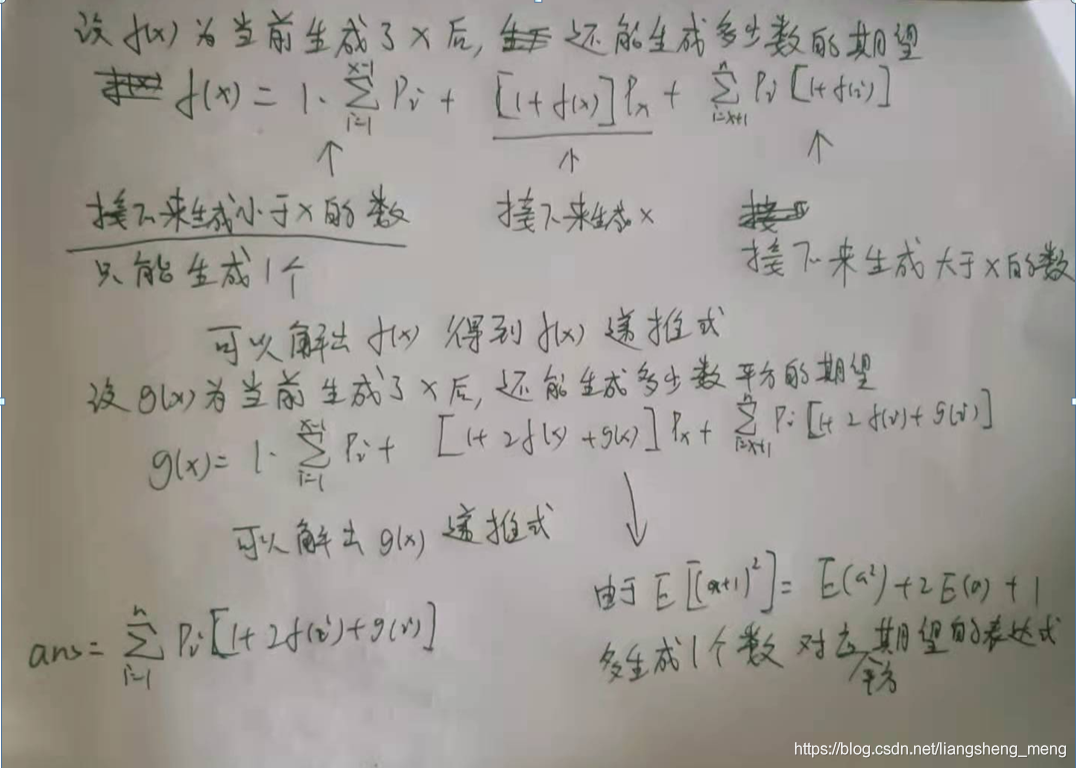 设 f(x) 为当前生成了 x 后, 还能生成多少数的期望
f(x) = 1· ∑_{i=1}^{x-1} Pi + [1+f(x)]Px + ∑_{i=x+1}^{n} Pi [1+f(i)]
↑ ↑ ↑
接下来生成小于x的数 接下来生成x
只能生成1个 接下来生成大于x的数
可以解出 f(x) 得到 f(x) 递推式
设 g(x) 为当前生成了 x 后, 还能生成多少数平方的期望
g(x) = 1· ∑_{i=1}^{x-1} Pi + [1+2f(x)+g(x)]Px + ∑_{i=x+1}^{n} Pi [1+2f(i)+g(i)]
↓
可以解出 g(x) 递推式
由于 E[(a+1)²] = E(a²)+2E(a)+1
ans = ∑_{i=1}^{n} Pi[1+2f(i)+g(i)]
多生成1个数 对应平方期望的表达式
https://blog.csdn.net/liangsheng_meng